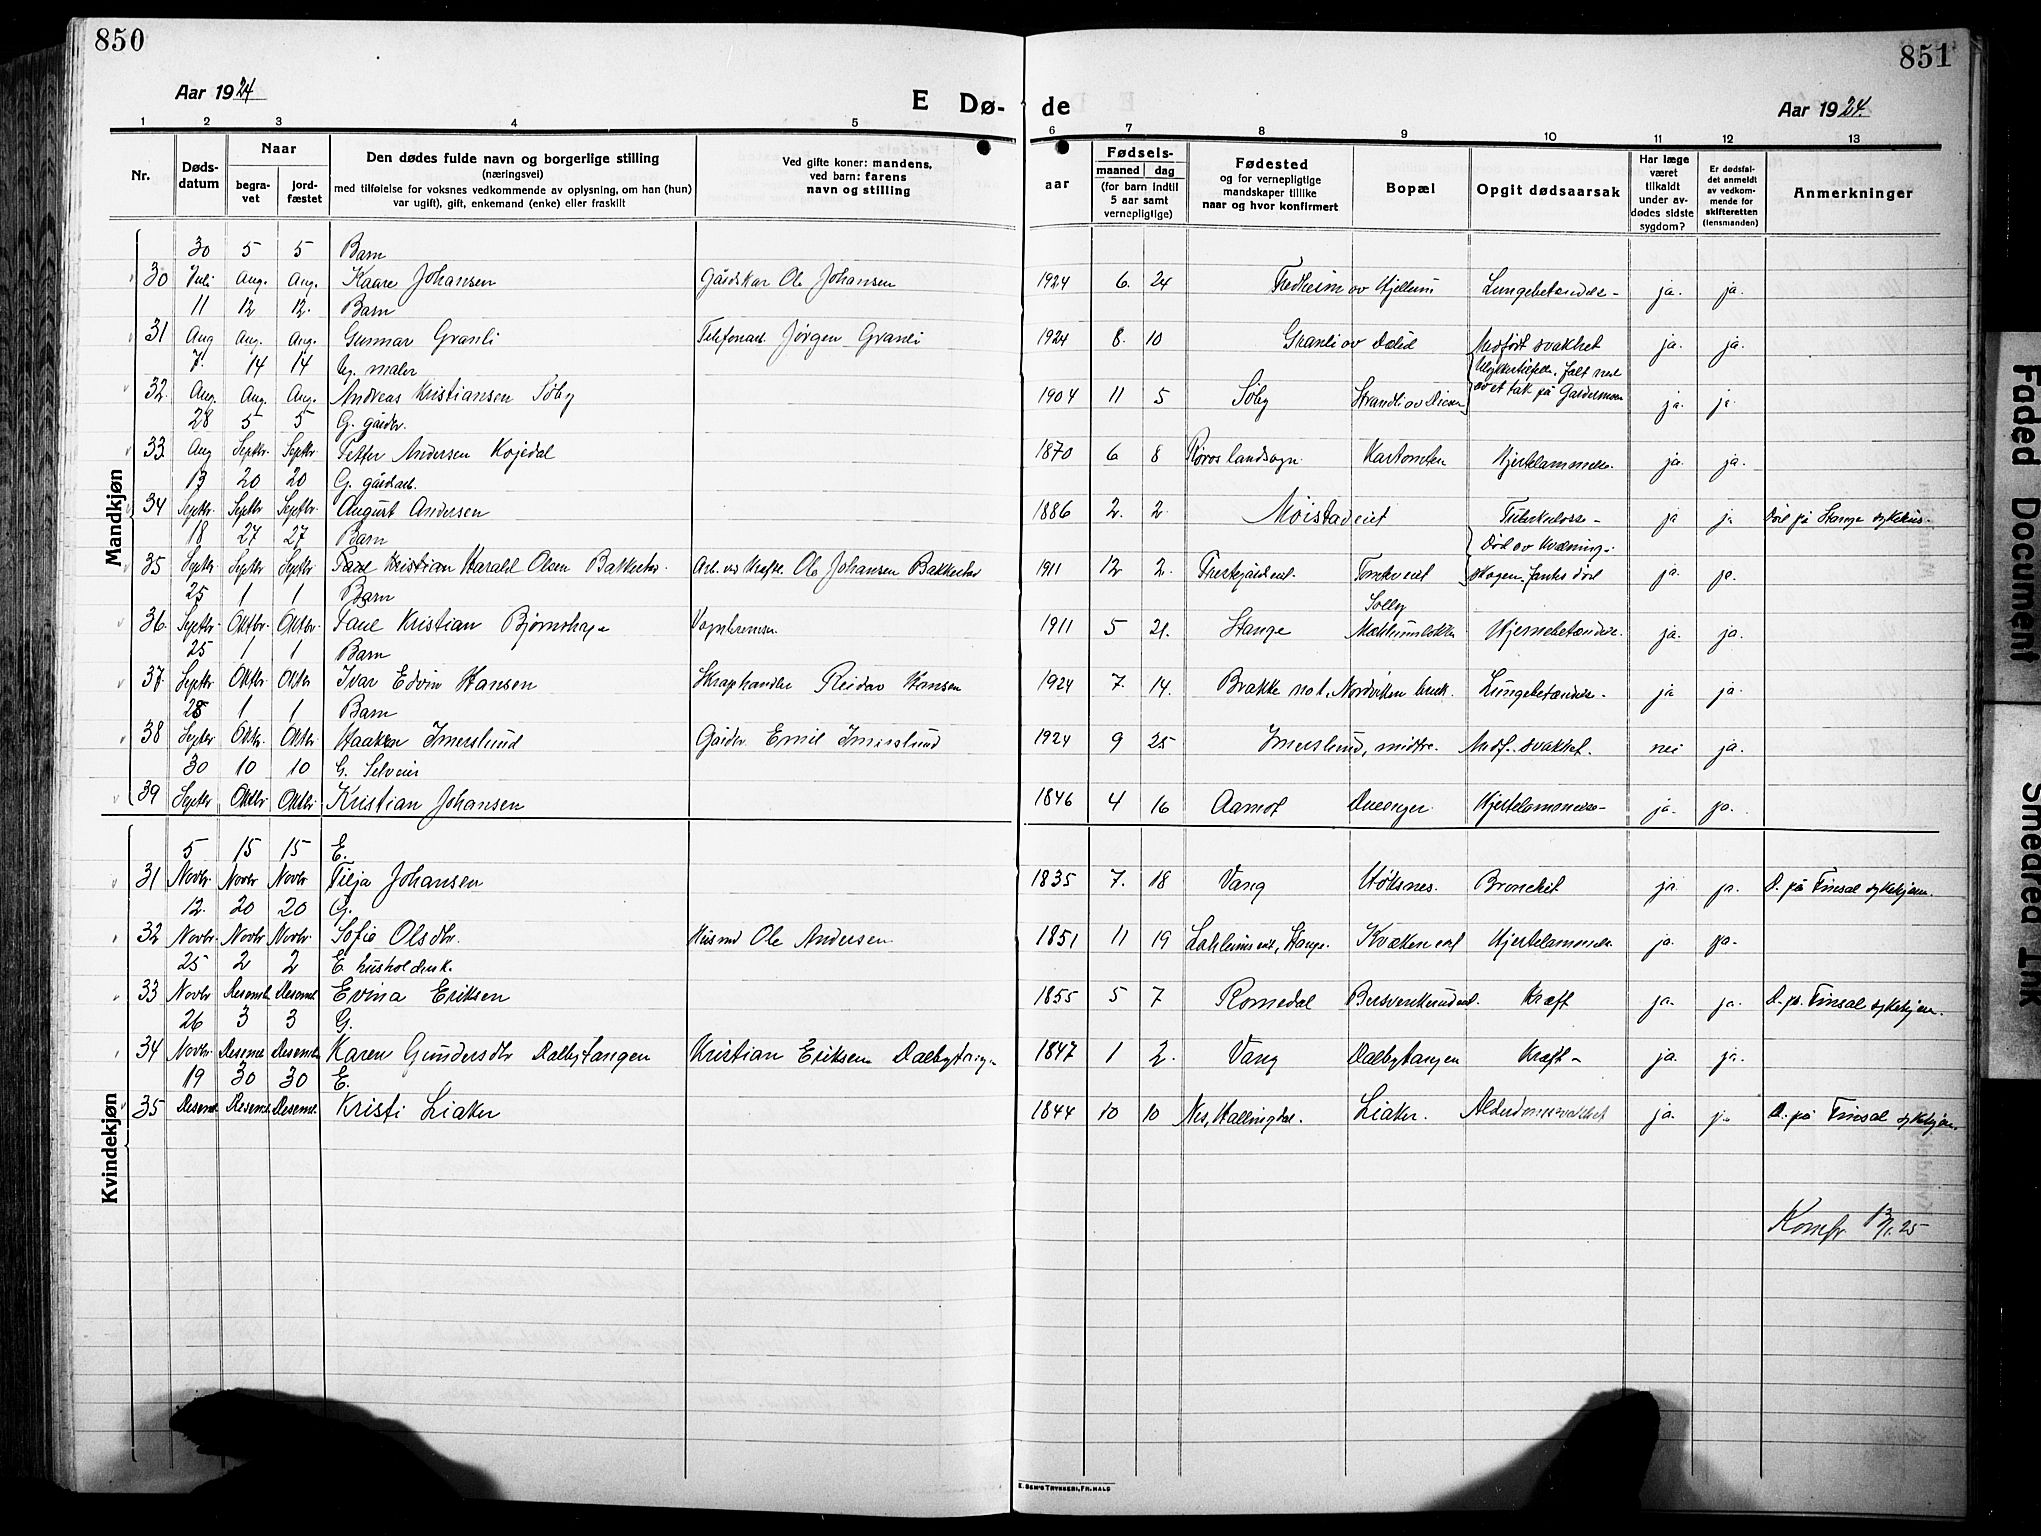 850
851
Aar 1924
E Dø-
de
Aar 1924.
1 2 3 4 5 6 7 8 9 10 11 12 13
Nr.
Døds-
datum
Naar
begra-
vet
jord-
fæstet
Den dødes fulde navn og borgerlige stilling
(næringsvei)
med tilføielse for voksnes vedkommende av oplysning, om han (hun)
var ugift), gift, enkemand (enke) eller fraskilt
Ved gifte koner: mandens,
ved barn: farens
navn og stilling
aar
Fødsels-
maaned dag
(for barn indtil
5 aar samt
vernepligtige)
Fødested
og for vernepligtige
mandskaper tillike
naar og hvor konfirmert
Bopæl
Opgit dødsaarsak
Har læge
været
tilkaldt
under av-
dødes sidste
sygdom?
Er dødsfal-
det anmeldt
av vedkom-
mende for
skifteretten
(lensmanden)
Anmerkninger
Mandkjøn
30 5 5 Barn
30 Juli Aug. Aug. Kaare Johansen Gårdskar Ole Johansen 1924 6. 24 Fredheim av Hjellum ja. ja.
11 12 12. Barn
31 Aug Aug. Aug. Gunnar Granli Jørgen Granli 1924 8. 10 Granli av Medfødt svakhet ja. ja.
7. 14 14 Ug. maler
32. Aug. Aug. Aug. Andreas Kristiansen Søby 1904 11 5 Søby ja. ja.
28 5 5 G. gårdbr.
33. Aug Septbr. Septbr Petter Andersen 1870 6 8 Røros landsogn. Hjertelammelse. ja. ja.
13 20 20 G. gårdsarb.
34 Septbr. Septbr Septbr. August Andersen 1886 2. 2. Tuberkulose - ja ja Död på Stange sykehus.
18 27 27 Barn
35 Septbr Septbr Septbr. Kristian Harald Olsen Ole Johansen 1911 12 2. ja. ja.
25 1 1 Barn
36. Septbr. Oktbr. Oktbr. Paul Kristian Bjørnshage 1911 5 21. Stange Hjernebetændelse. ja. ja.
25 1 1 Barn
37. Septbr Oktbr Oktbr Ivar Edvin Hansen Skraphandler Reidar Hansen 1924 7. 14. Brakke no 1, Nordviken bruk. Lungebetændelse - ja ja.
28 1 1 Barn
38 Septbr Oktbr. Oktbr Haakon Imerslund Gårdbr. Emil Imerslund 1924 9 25 Imerslund, midtre. Medf. svakhet. nei ja.
30 10 10 G.
39 Septbr Oktbr Oktbr. Kristian Johansen 1846 4 16 Aamot Hjertelammelse - ja. ja.
Kvindekjøn
5 15 15 E.
31 Novbr. Novbr Novbr Johansen 1835 7. 18 Vang Bronchit ja. ja. D. på Finsal sykehjem.
12. 20 20 G.
32 Novbr. Novbr Novbr. Sofie Olsdtr. Husmd Ole Andersen 1851 11 19 Hjertelammelse. ja. ja.
25 2 2 E. husholdersk.
33 Novbr Desemb. Desemb. Evina Eriksen 1855 5 7 Romedal Kræft ja. ja. D. på Finsal sykehjem.
26 3 3 G.
34 Novbr. Desemb Desemb. Karen Gundersdtr Dalbytangen Kristian Eriksen Dalbytangen 1847 1 2. Vang Dalbytangen Kræft - ja. ja.
19 30 30 E.
35 Desemb. Desemb. Desemb. Kristi Liaker 1844 10 10 Nes, Hallingdal. Liaker. Alderdomssvakhet ja. ja D. på Finsal sykehjem.
13/1. 25
E. SEM'S TRYKKERI, FR. HALD
Faded Document
Smeared Ink